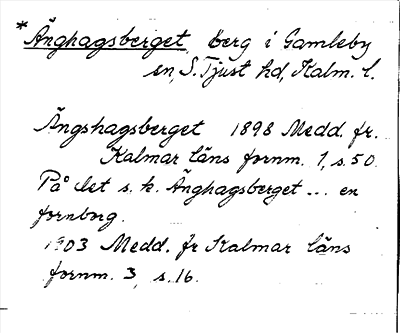 *Änghagsberget, berg i Gamleby
sn, S. Tjust hd, Kalm. l.
Ängshagsberget 1898 Medd. fr.
Kalmar läns fornm. 1, s. 50.
På det s. k. Änghagsberget ... en
fornborg.
1903 Medd. fr Kalmar läns
fornm. 3, s. 16.